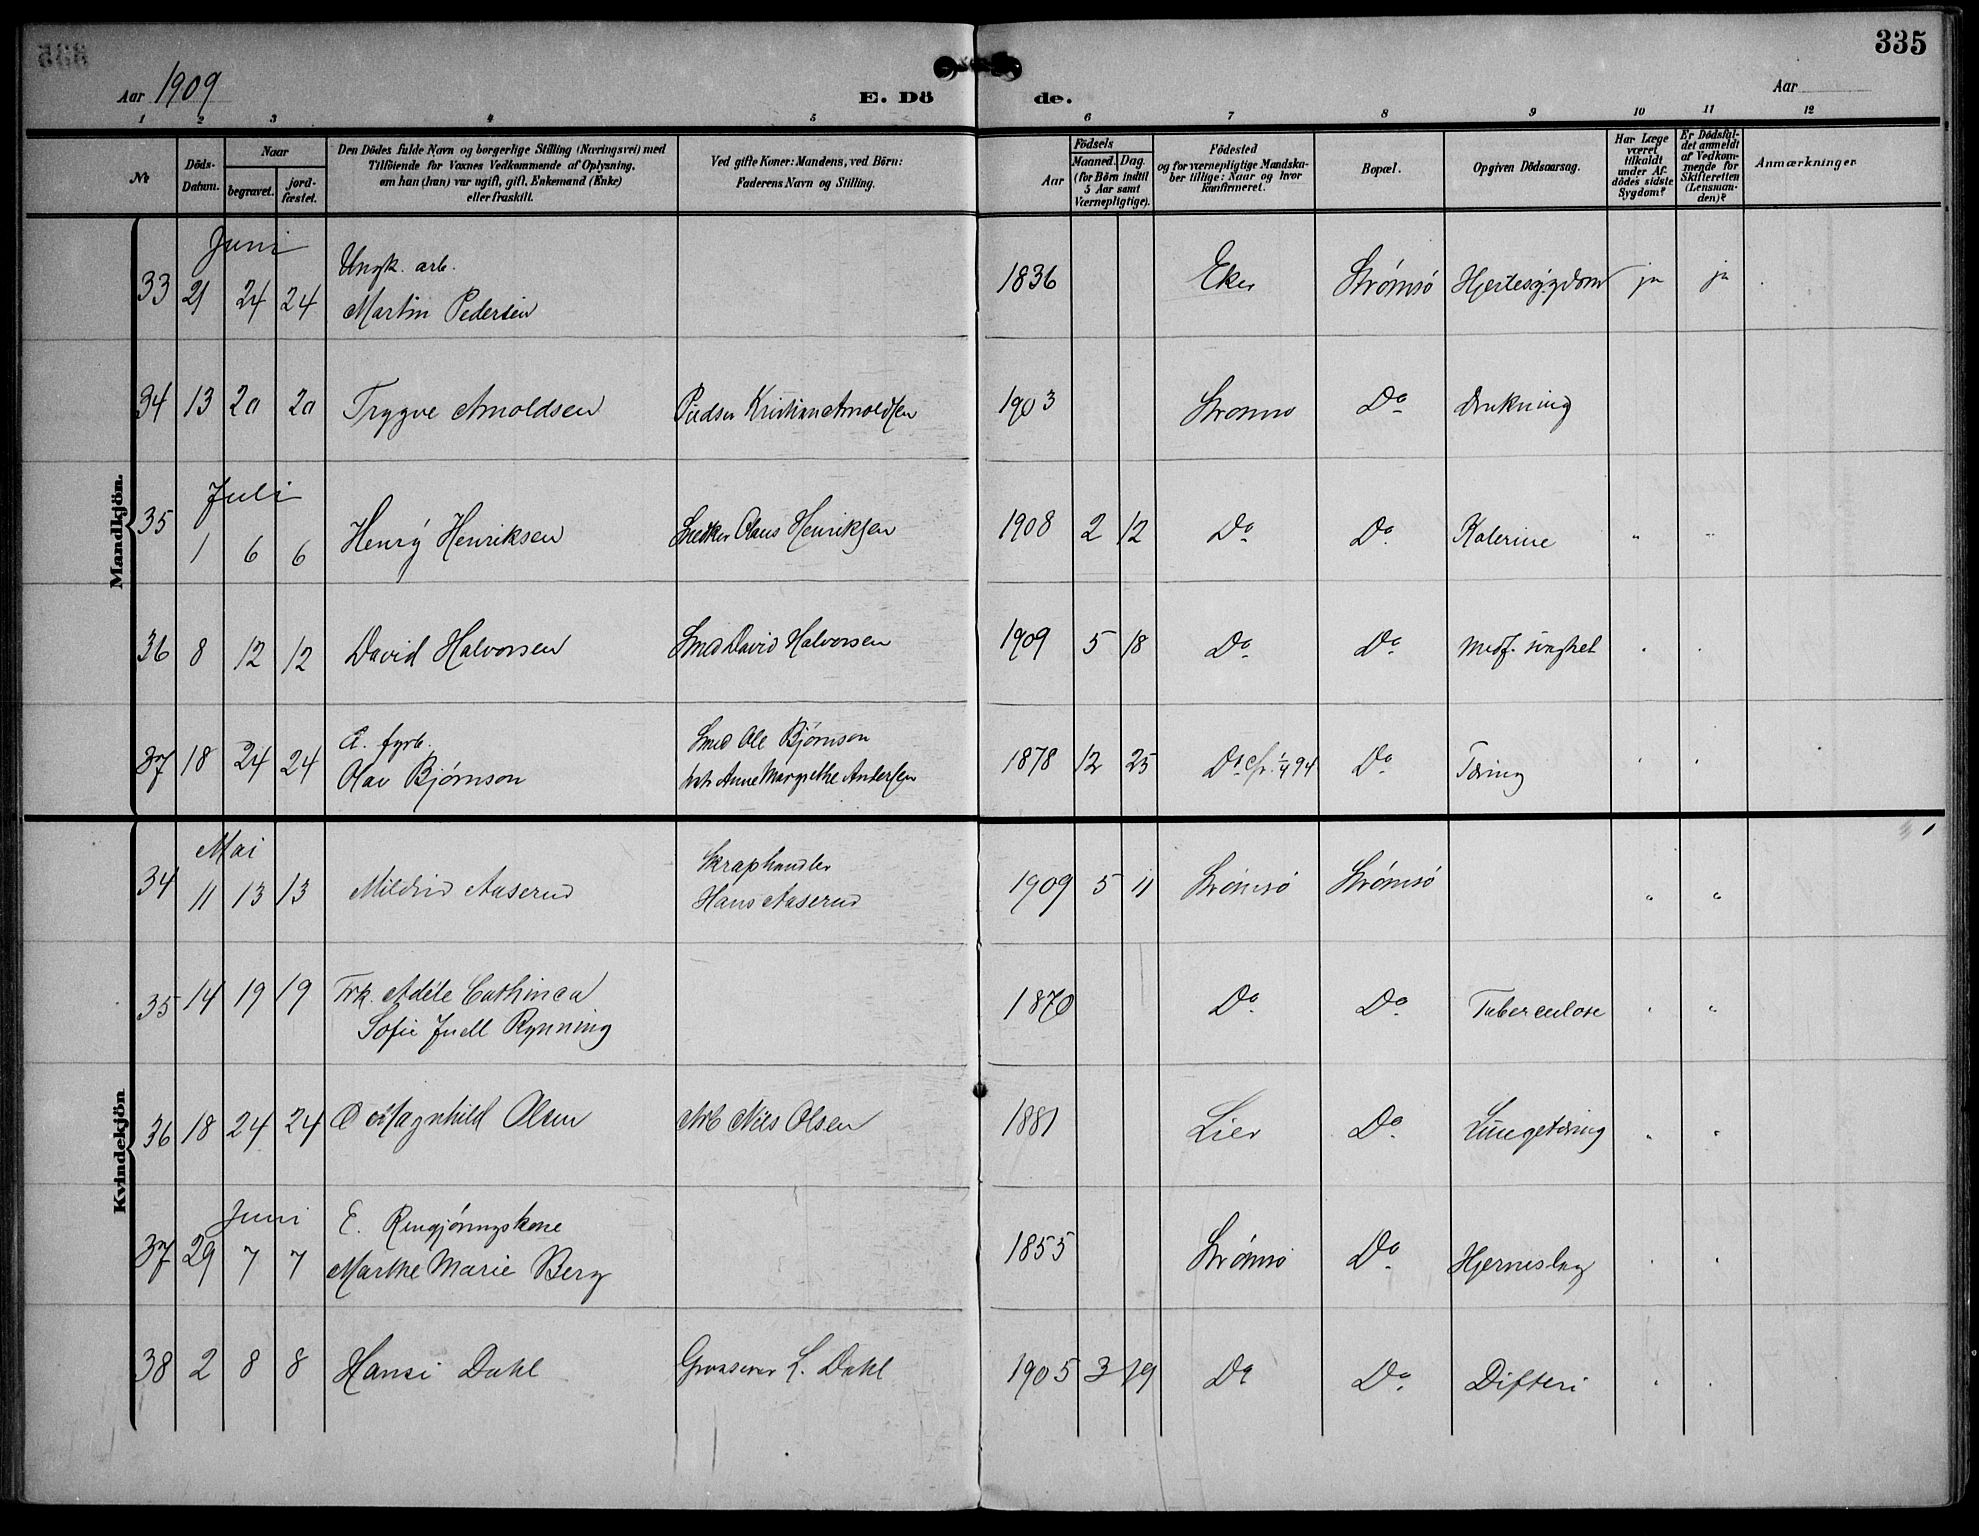 335
Aar 1909
E. Dö
de.
Aar
1 2 3 4 5 6 7 8 9 10 11 12
№
Döds-
Datum.
Naar
begravet.
jord-
fæstet.
Den Dödes fulde Navn og borgerlige Stilling (Næringsvei) med
Tilföiende for Voxnes Vedkommende af Oplysning,
om han (hun) var ugift, gift, Enkemand (Enke)
eller fraskilt.
Ved gifte Koner: Mandens, ved Börn:
Faderens Navn og Stilling.
Födsels
Aar
Maaned. Dag.
(for Börn indtil
5 Aar samt
Værnepligtige).
Födested
og for værnepligtige Mandska-
ber tillige: Naar og hvor
konfirmeret.
Bopæl.
Opgiven Dödsaarsag.
Har Læge
været
tilkaldt
under Af-
dödes sidste
Sygdom?
Er Dödsfal-
det anmeldt
af Vedkom-
mende for
Skifteretten
(Lensman-
den)?
Anmærkninger
Mandkjön.
Juni
Ungk. arb.
33 21 24 24 Martin Pedersen 1836 Eker Strømsø Hjertesygdom ja ja
34 13 20 20 Trygve Arnoldsen Kristian Arnoldsen 1903 Strømsø Do Drukning
Juli
35 1 6 6 Henrÿ Henriksen Snedker Olaus Henriksen 1908 2 12 Do Do Kolerine " "
36 8 12 12 David Halvorsen Smed David Halvorsen 1909 5 18 Do Do Medf. svaghet " "
U. fyrb. Smed Ole Bjørnson
37 18 24 24 Olav Bjørnson Anne Margrethe Andersen 1878 12 25 Do Do Tæring " "
Kvindekjön
Mai
Skraphandler
34 11 13 13 Mildrid Aaserud Hans Aaserud 1909 5 11 Strømsø Strømsø " "
35 14 19 19 Frk. Adéle Cathinca
Sofie Juell Rynning 1870 Do Do Tuberculose " "
36 18 24 24 Magnhild Olsen Arb Nils Olsen 1881 Lier Do Lungetæring " "
Juni
E. Rengjøringskone
37 29 7 7 Marthe Marie Berg 1855 Strømsø Do Hjerneslag " "
38 2 8 8 Hansi Dahl Grosserer L. Dahl 1905 3 19 Do Do Difteri " "